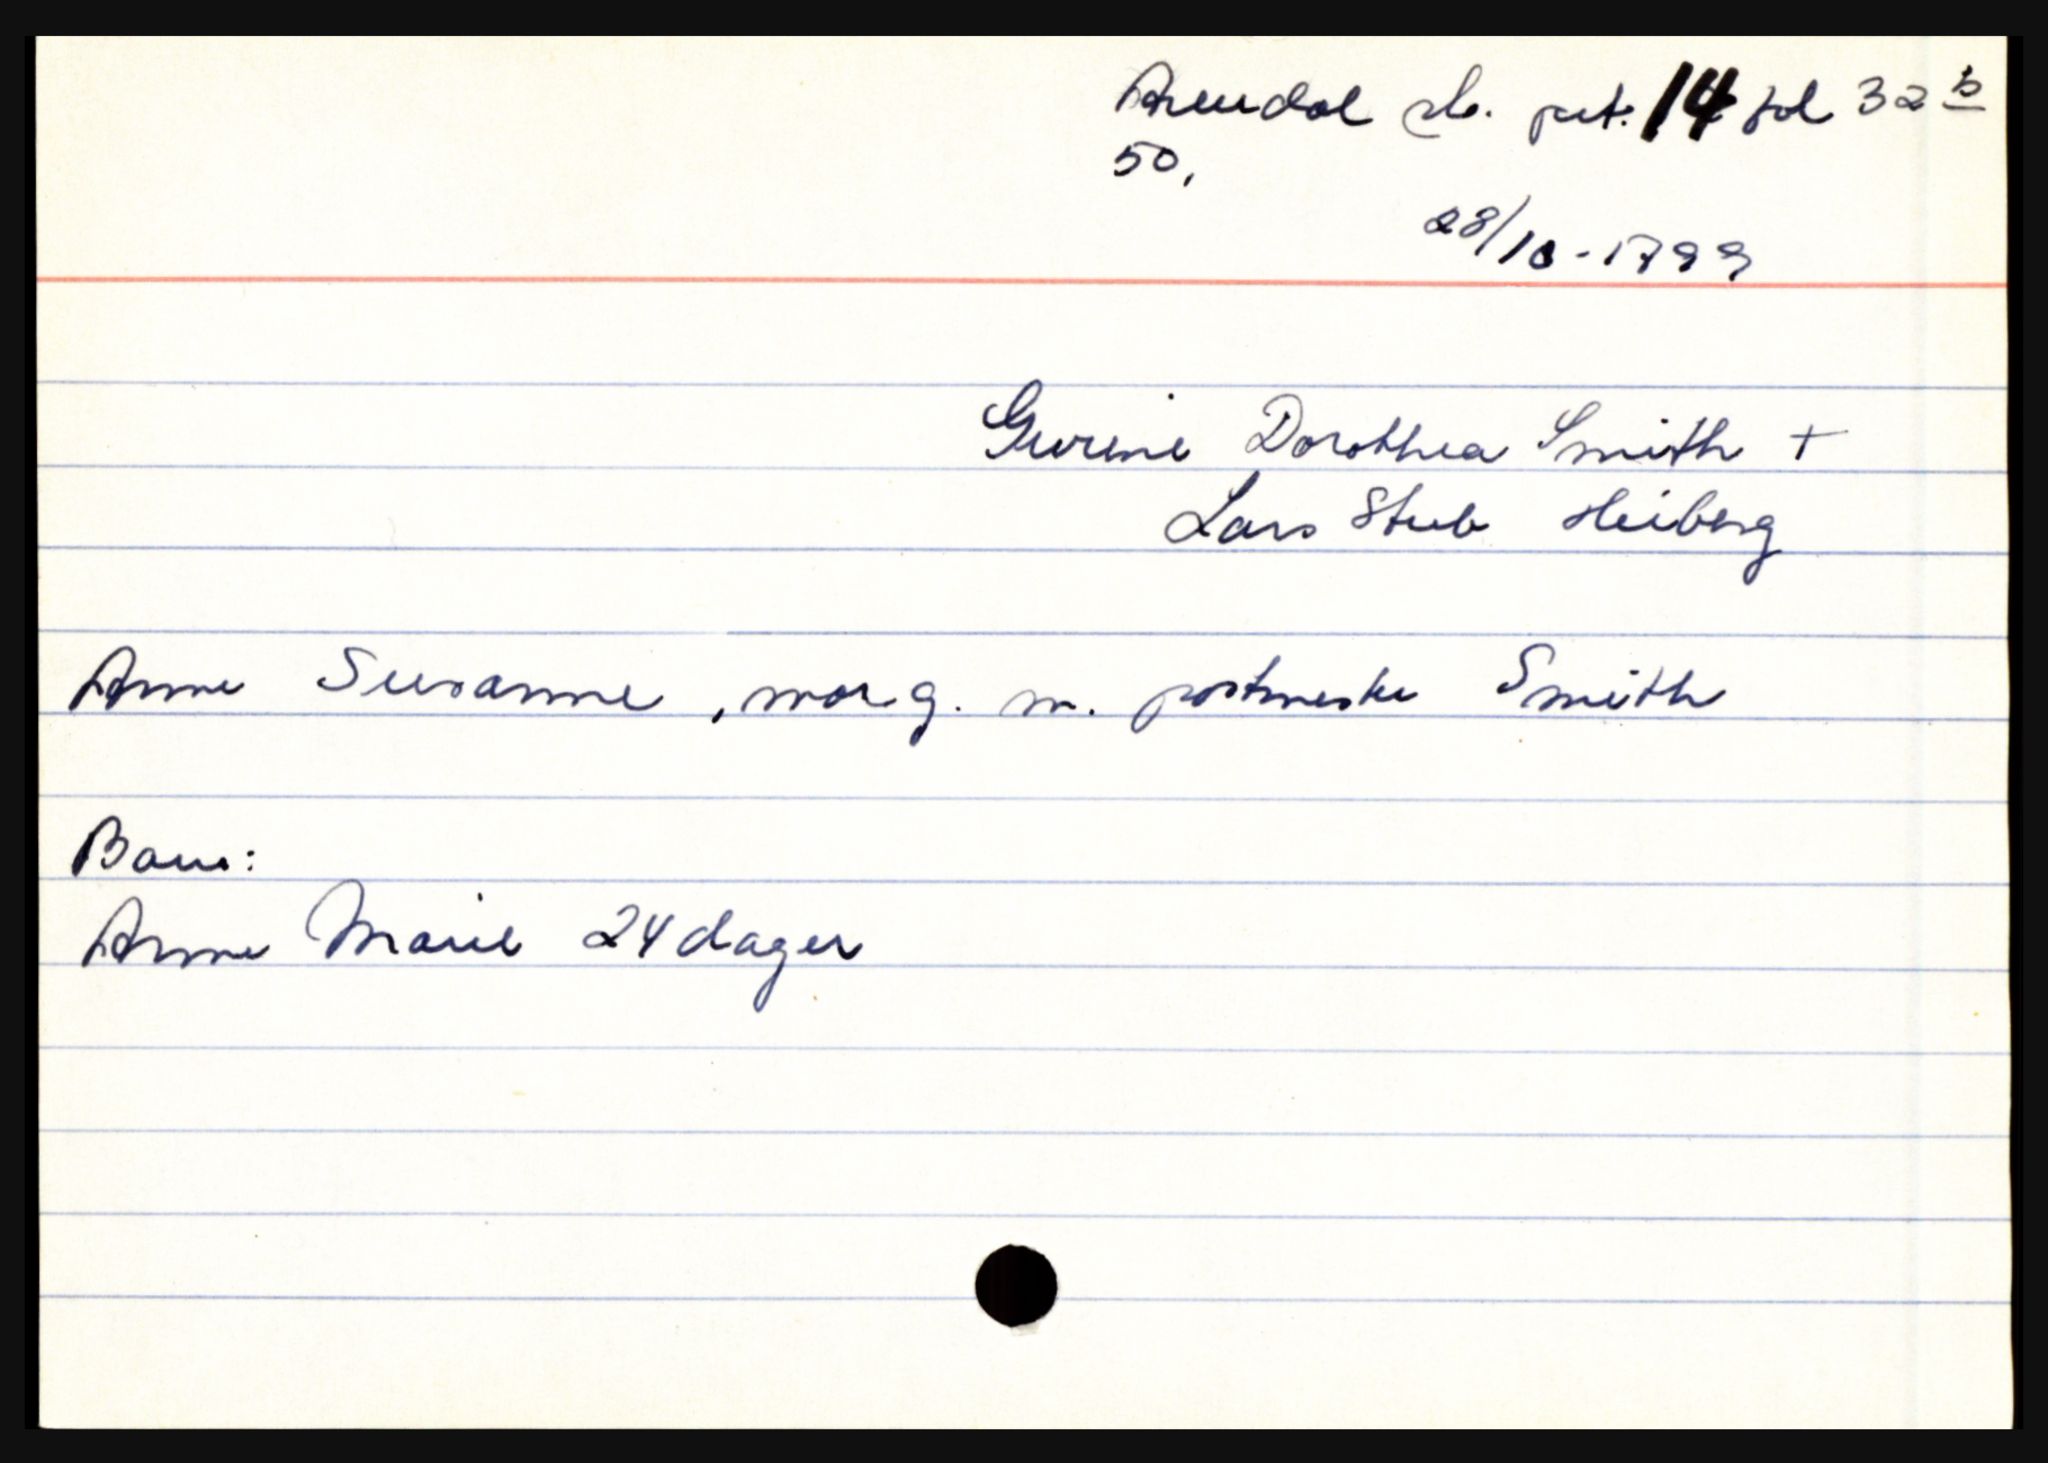 Arendal sk. prt. 14 fol 32 b
50,
28/10-1799
Gurine Dorothea Smith +
Lars Stub Heiberg
Anne Susanne, mor g. m. postmester Smith
Barn:
Anne Marie 24 dager